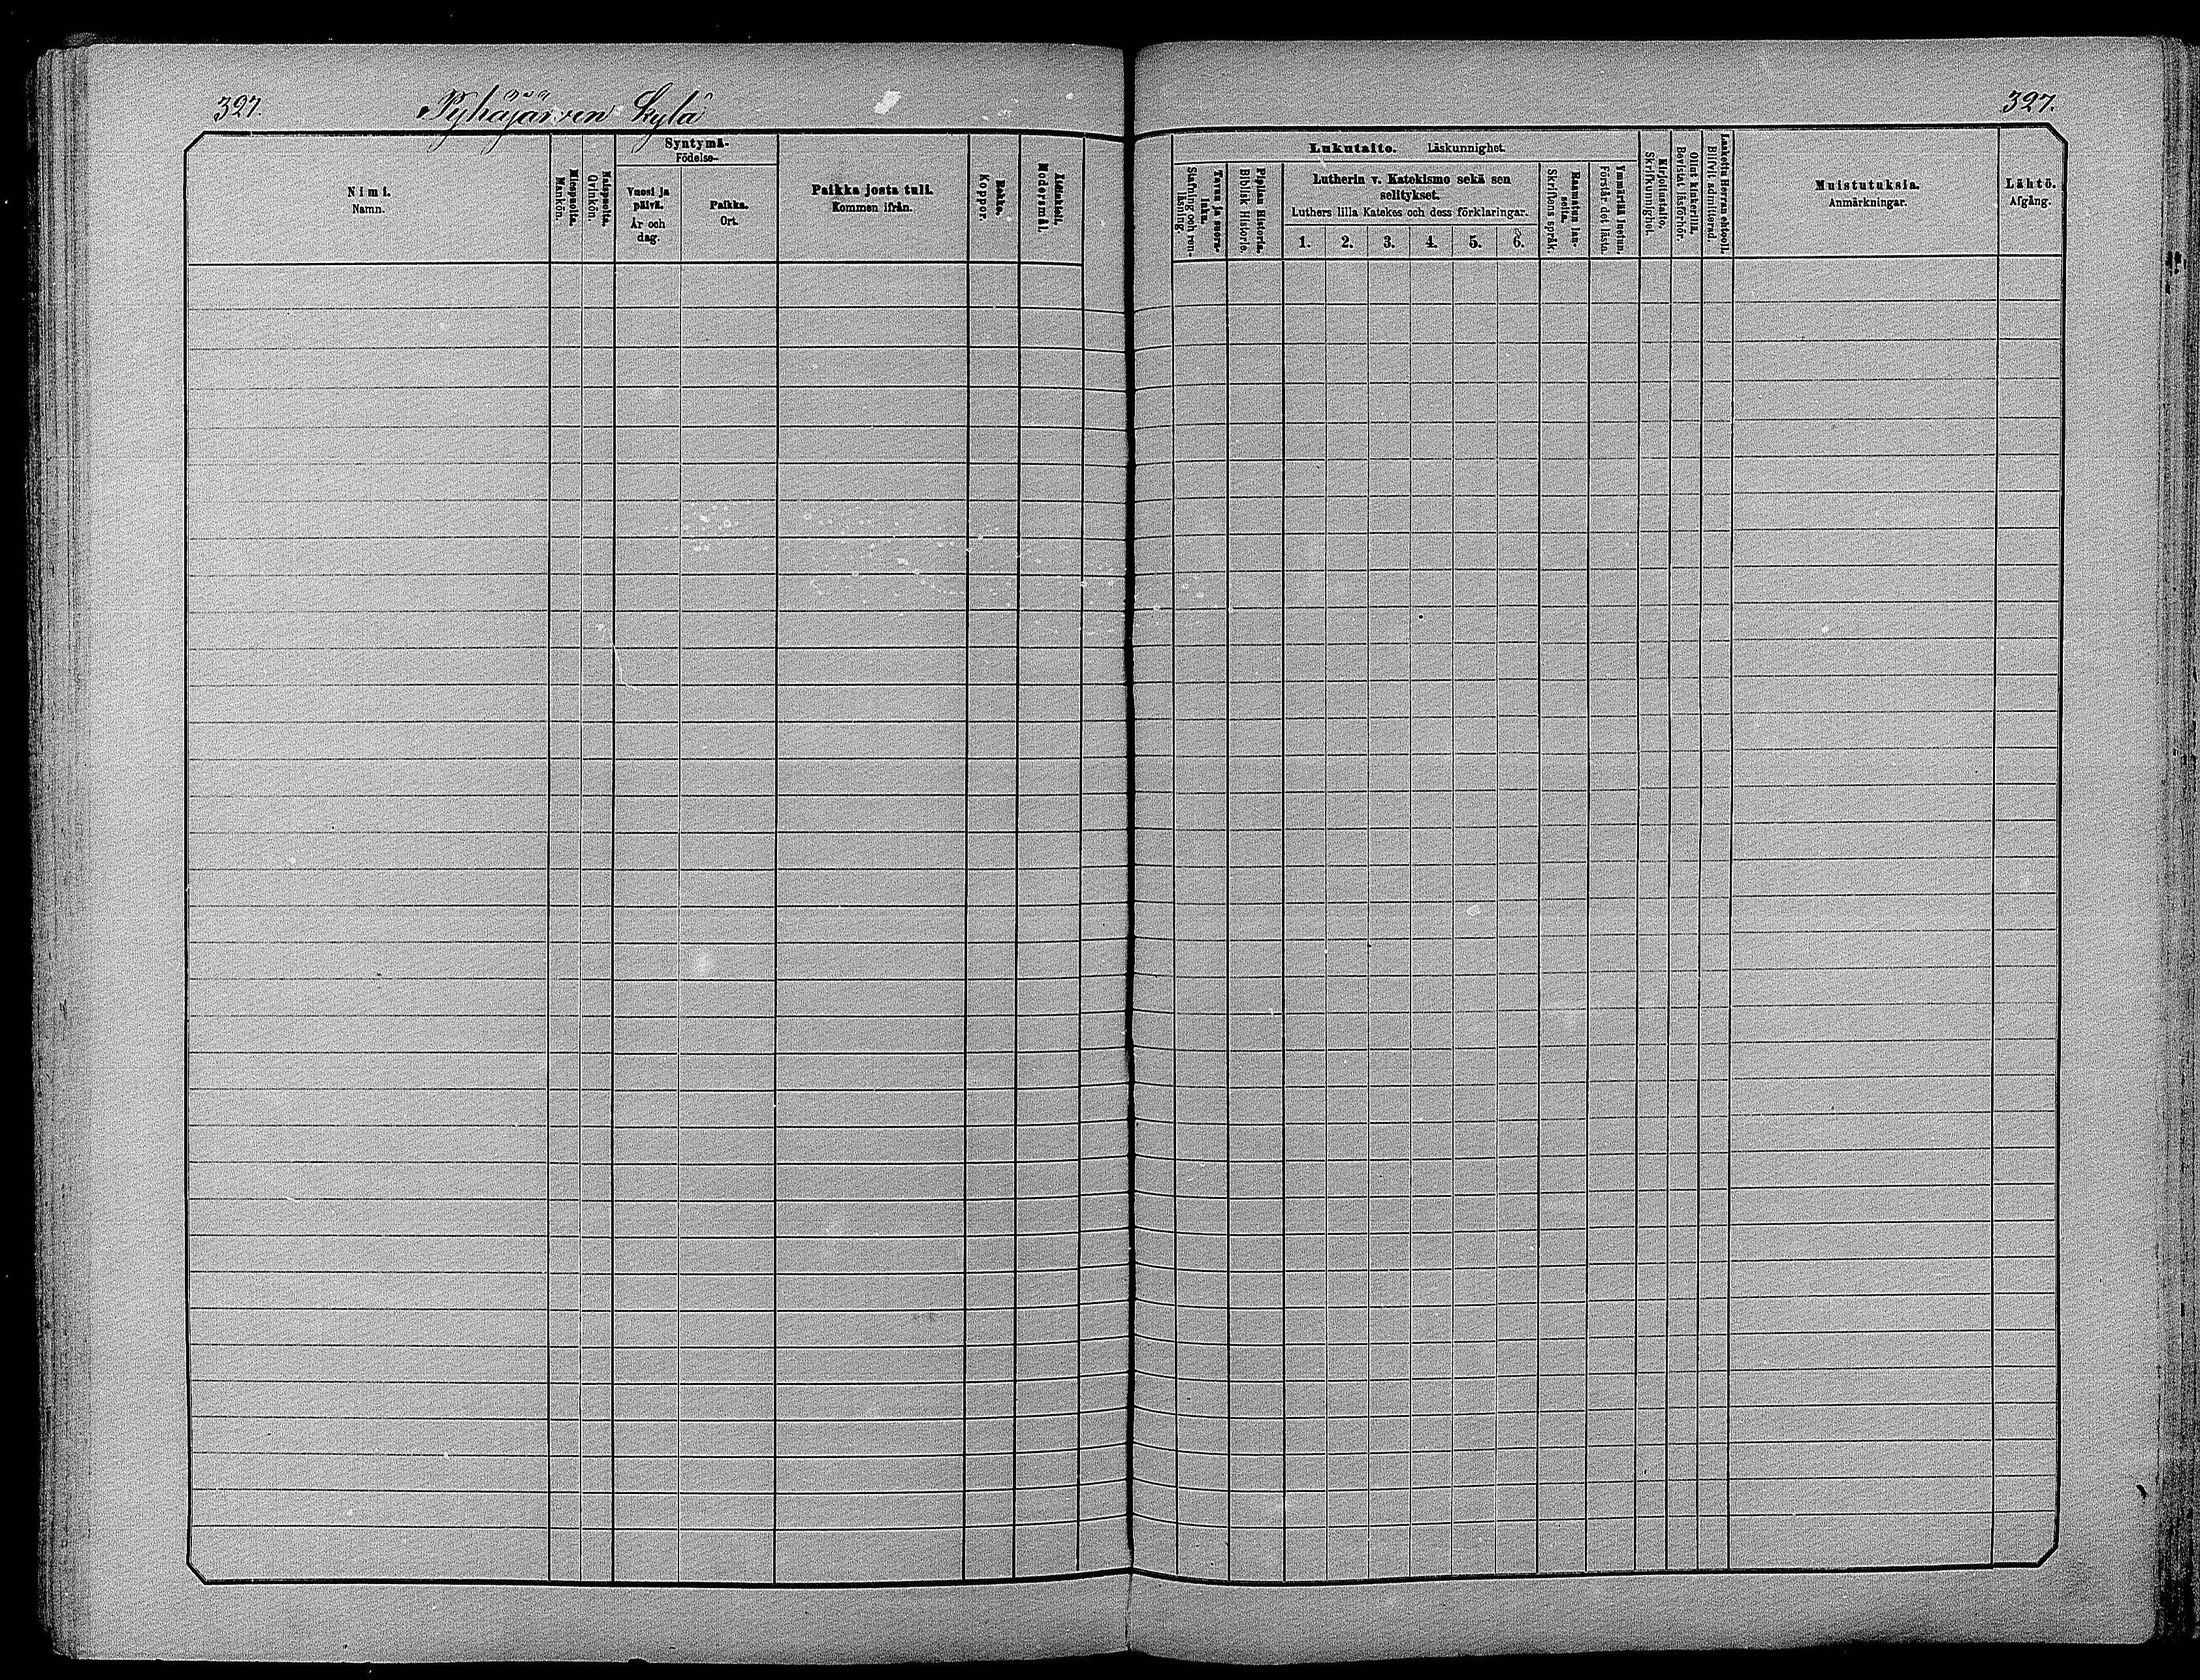 327.
Pyhäjärven kylä
327.
Nimi.
Namn.
Miespuolta.
Mankön.
Naispuolta.
Qvinkön.
Syntymä-
Födelse-
Vuosi ja
päivä.
År och
dag.
Paikka.
Ort.
Paikka josta tuli.
Kommen ifrån.
Rokko.
Koppor.
Äitinkieli.
Modersmål.
Lukutaito. Läskunnighet.
Tavuu ja suora-
luku.
Stafning och ren-
läsning
Piplian Historia.
Biblisk Historie.
Lutherin v. Katekismo sekä sen
selitykset.
Luthers lilla Katekes och dess förklaringar.
1. 2. 3. 4. 5. 6.
Raamatun lau-
seita.
Skriftens språk.
Ymmärtää luetun.
Förstår det lästa.
Kirjoitustaito.
Skrifkunnighet.
Ollut kinkerillä.
Bevistat läsförhör.
Laskettu Herran ehtoolle.
Blifvit admitterad.
Muistutuksia.
Anmärkningar.
Lähtö.
Afgång.